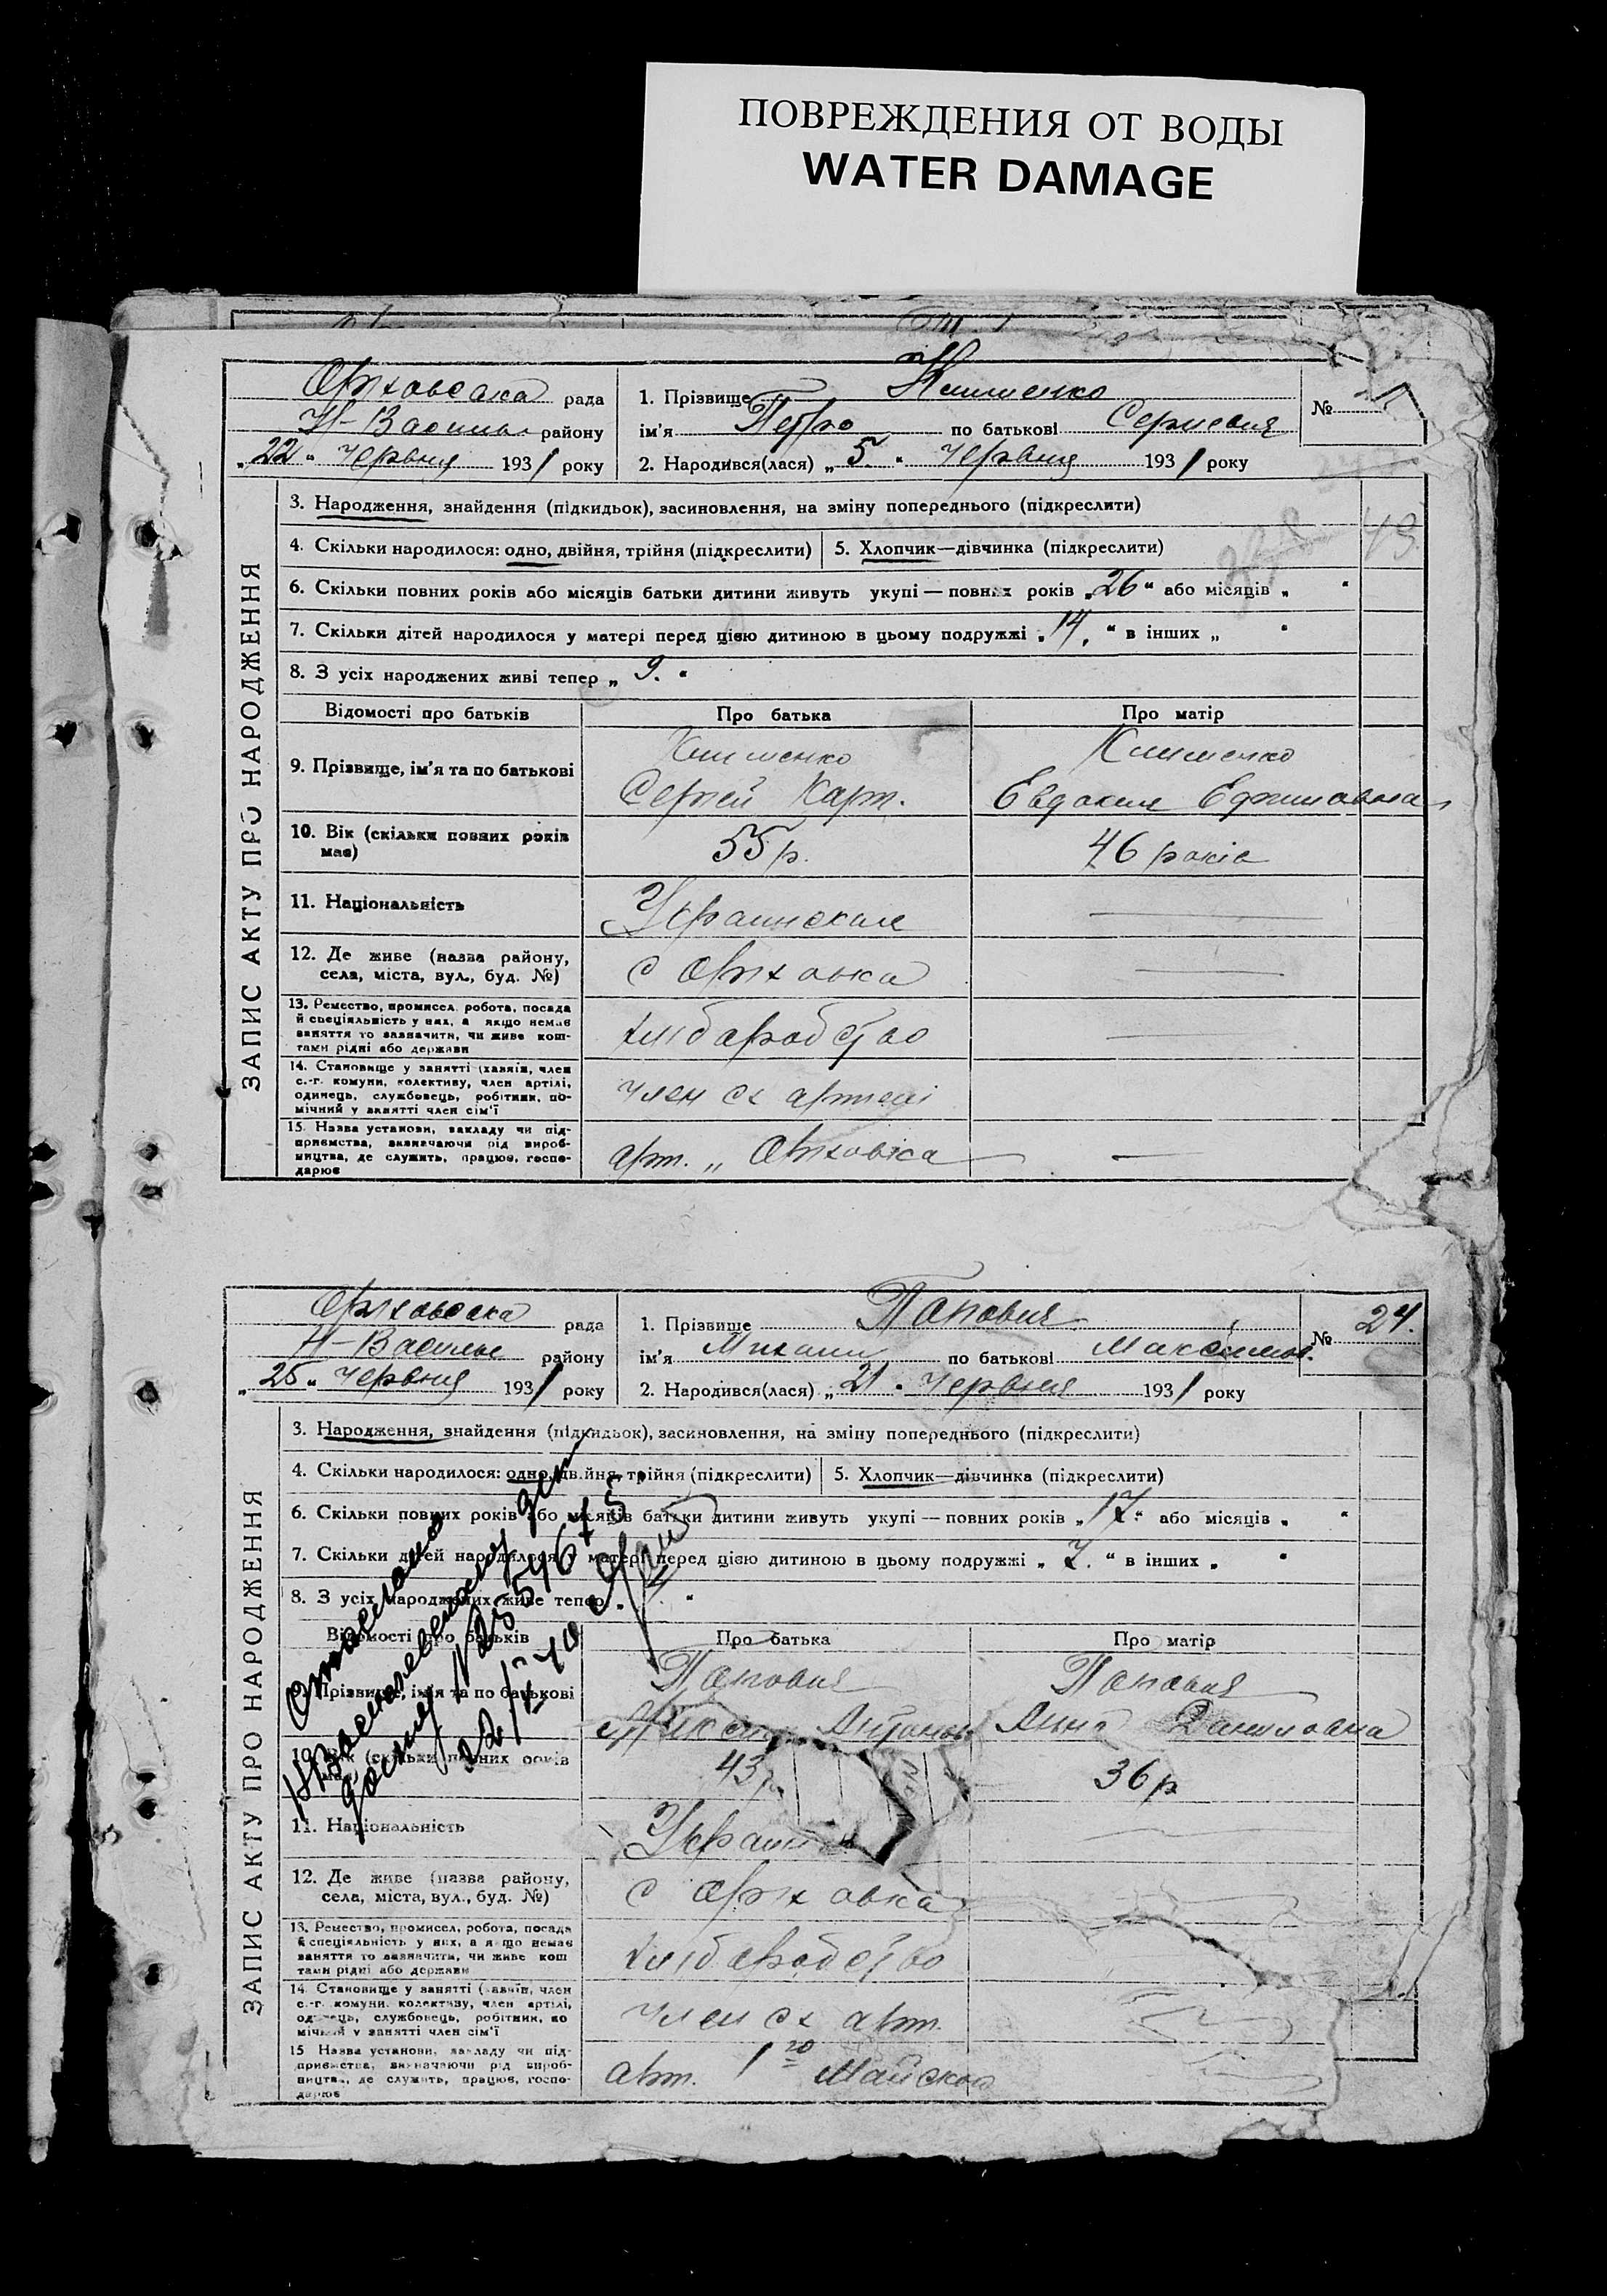 ПОВРЕЖДЕНИЯ ОТ ВОДЫ
WATER DAMAGE
рада
Н-Васильє району
„22“ червня 1931 року
1. Прізвище
ім'я Петро по батькові Сергиевич
2. Народився(лася) „5.“ Червня 1931 року
№
ЗАПИС АКТУ ПРО НАРОДЖЕННЯ
3. Народження, знайдення (підкидьок), засиновлення, на зміну попереднього (підкреслити)
4. Скільки народилося: одно, двійня, трійня (підкреслити)
5. Хлопчик—дівчинка (підкреслити)
6. Скільки повних років або місяців батьки дитини живуть укупі — повних років „26“ або місяців „ “
7. Скільки дітей народилося у матері перед цією дитиною в цьому подружжі „14.“ в інших „ “
8. З усіх народжених живі тепер „9.“
Відомості про батьків
Про батька
Про матір
9. Прізвище, ім'я та по батькові
Сергей Карп.
Евдокия Ефимовна
10. Вік (скільки повних років має)
55 р.
46 років
11. Національність
12. Де живе (назва району,
села, міста, вул., буд. №)
13. Ремество, промисел, робота, посада
й спеціяльність у них, а якщо немає
заняття то зазначити, чи живе кош-
тами рідні або держави
хліборобство
14. Становище у занятті (хазяїн, член
с.-г. комуни, колективу, член артілі,
одинець, службовець, робітник, по-
мічний у занятті член сім'ї
член сх артелі
15. Назва установи, закладу чи під-
приємства, зазначаючи рід вироб-
ництва, де служить, працює, госпо-
дарює
арт.
рада
Н-Васильє району
„25“ Червня 1931 року
1. Прізвище Попович
ім'я Михаил по батькові Максимов.
2. Народився(лася) „21“ Червня 1931 року
№ 24.
ЗАПИС АКТУ ПРО НАРОДЖЕННЯ
3. Народження, знайдення (підкидьок), засиновлення, на зміну попереднього (підкреслити)
4. Скільки народилося: одно, двійня, трійня (підкреслити)
5. Хлопчик—дівчинка (підкреслити)
6. Скільки повних років або місяців батьки дитини живуть укупі — повних років „17“ або місяців „ “
7. Скільки дітей народилося у матері перед цією дитиною в цьому подружжі „7.“ в інших „ “
8. З усіх народжених живе тепер „4.“
Відомості про батьків
Про батька
Про матір
9. Прізвище, ім'я та по батькові
Попович
Попович
Анна Даниловна
10. Вік (скільки повних років
має)
43 р.
36 р
11. Національність
12. Де живе (назва району,
села, міста, вул., буд. №)
13. Ремество, промисел, робота, посада
й спеціяльність у них, а якщо немає
заняття то зазначити, чи живе кош
тами рідні або держави
хліборобство
14. Становище у занятті (хазяїн, член
с.-г. комуни, колективу, член артілі,
одинець, службовець, робітник, по
мічний у занятті член сім'ї
член сх арт.
15 Назва установи, закладу чи під-
приємства, зазначаючи рід вироб-
ництва, де служить, працює, госпо-
дарює
арт. 1го Майской